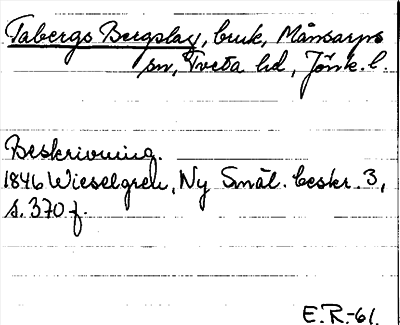 Tabergs Bergslag, bruk, Månsarps
sn, Tveta hd, Jönk. l.
Beskrivning.
1846 Wieselgren, Ny Smål. beskr. 3,
s. 370 f.
E.R.-61.